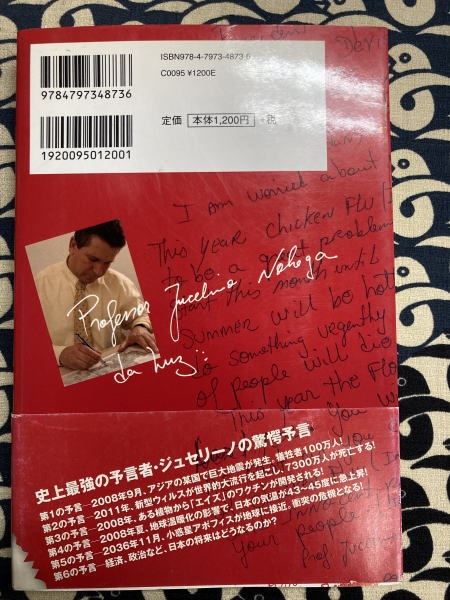 ISBN978-4-7973-4873-6
C0095 ¥1200E
9784797348736
定価 本体1,200円 +税
1920095012001
I am worried about
This year chicken Flu
to be a great problem
start this month until
summer will be hot
do something urgently
of people will die
This year the Flo
your people
Prof. Jucel
Professor Jucelino Nobrega
da Luz
史上最強の予言者・ジュセリーノの驚愕予言
第1の予言―2008年9月、アジアの某国で巨大地震が発生。犠牲者100万人!
第2の予言―2011年、新型ウィルスが世界的大流行を起こし、7300万人が死亡する!
第3の予言―2008年、ある植物から「エイズ」のワクチンが開発される!
第4の予言―2008年夏、地球温暖化の影響で、日本の気温が43~45度に急上昇!
第5の予言―2036年11月、小惑星アポフィスが地球に接近。衝突の危機となる!
第6の予言―経済、政治など、日本の将来はどうなるのか?